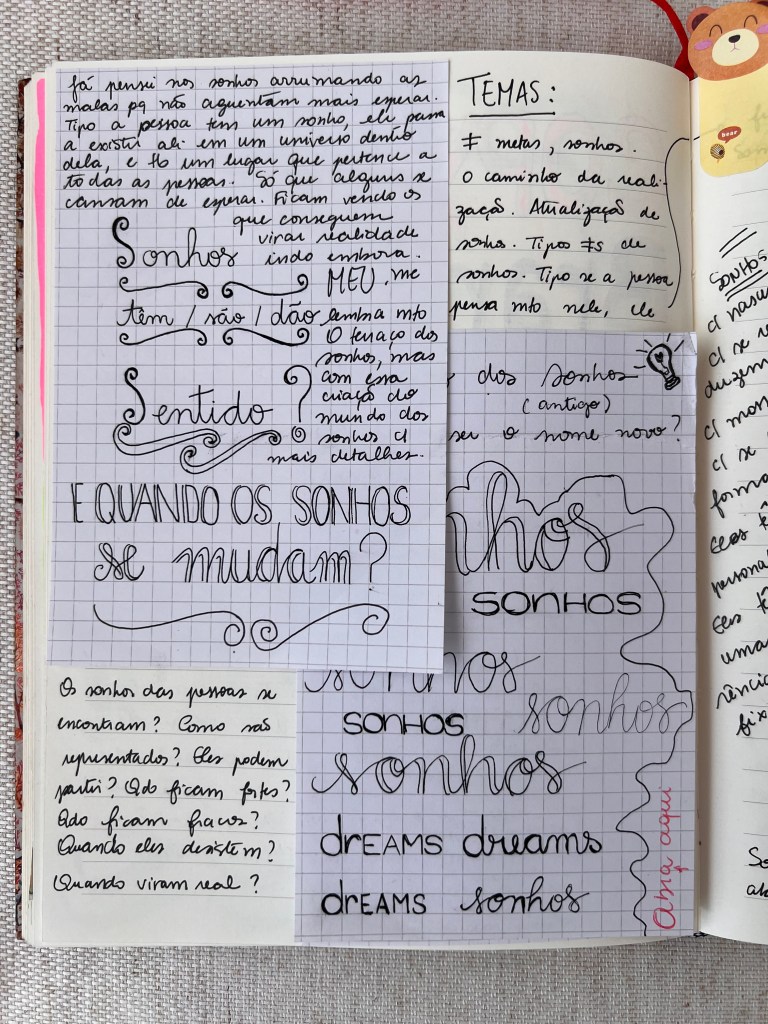 Já pensei nos sonhos arrumando as
malas pq não aguentam mais esperar.
Tipo a pessoa tem um sonho, ele passa
a existir ali em um universo dentro
dela, e tb um lugar que pertence a
todas as pessoas. Só que alguns se
cansam de esperar. Ficam vendo os
que conseguem
virar realidade
indo embora.
Sonhos
MEU. me
têm / são / dão
lembra mto
O terraço dos
sonhos, mas
com essa
criação do
mundo dos
sonhos c/
mais detalhes.
Sentido?
E QUANDO OS SONHOS
se mudam?
TEMAS:
≠ metas, sonhos.
O caminho da reali-
zação. Atualização de
sonho. Tipos ≠s de
sonhos. Tipo se a pessoa
pensa mto nele, ele
dos sonhos
(antigo)
ser o nome novo?
nhos
SONHOS
sonhos
sonhos
SONHOS
sonhos
drEAMS dreams
drEAMS sonhos
Abra aqui
Os sonhos das pessoas se
encontram? Como são
representados? Eles podem
partir? Qdo ficam fortes?
Qdo ficam fracos?
Quando eles desistem?
Quando viram real?
bear
SONHOS
c/ mons
c/ se
forma
Eles t
persona
Eles t
uma
rência
fix
So